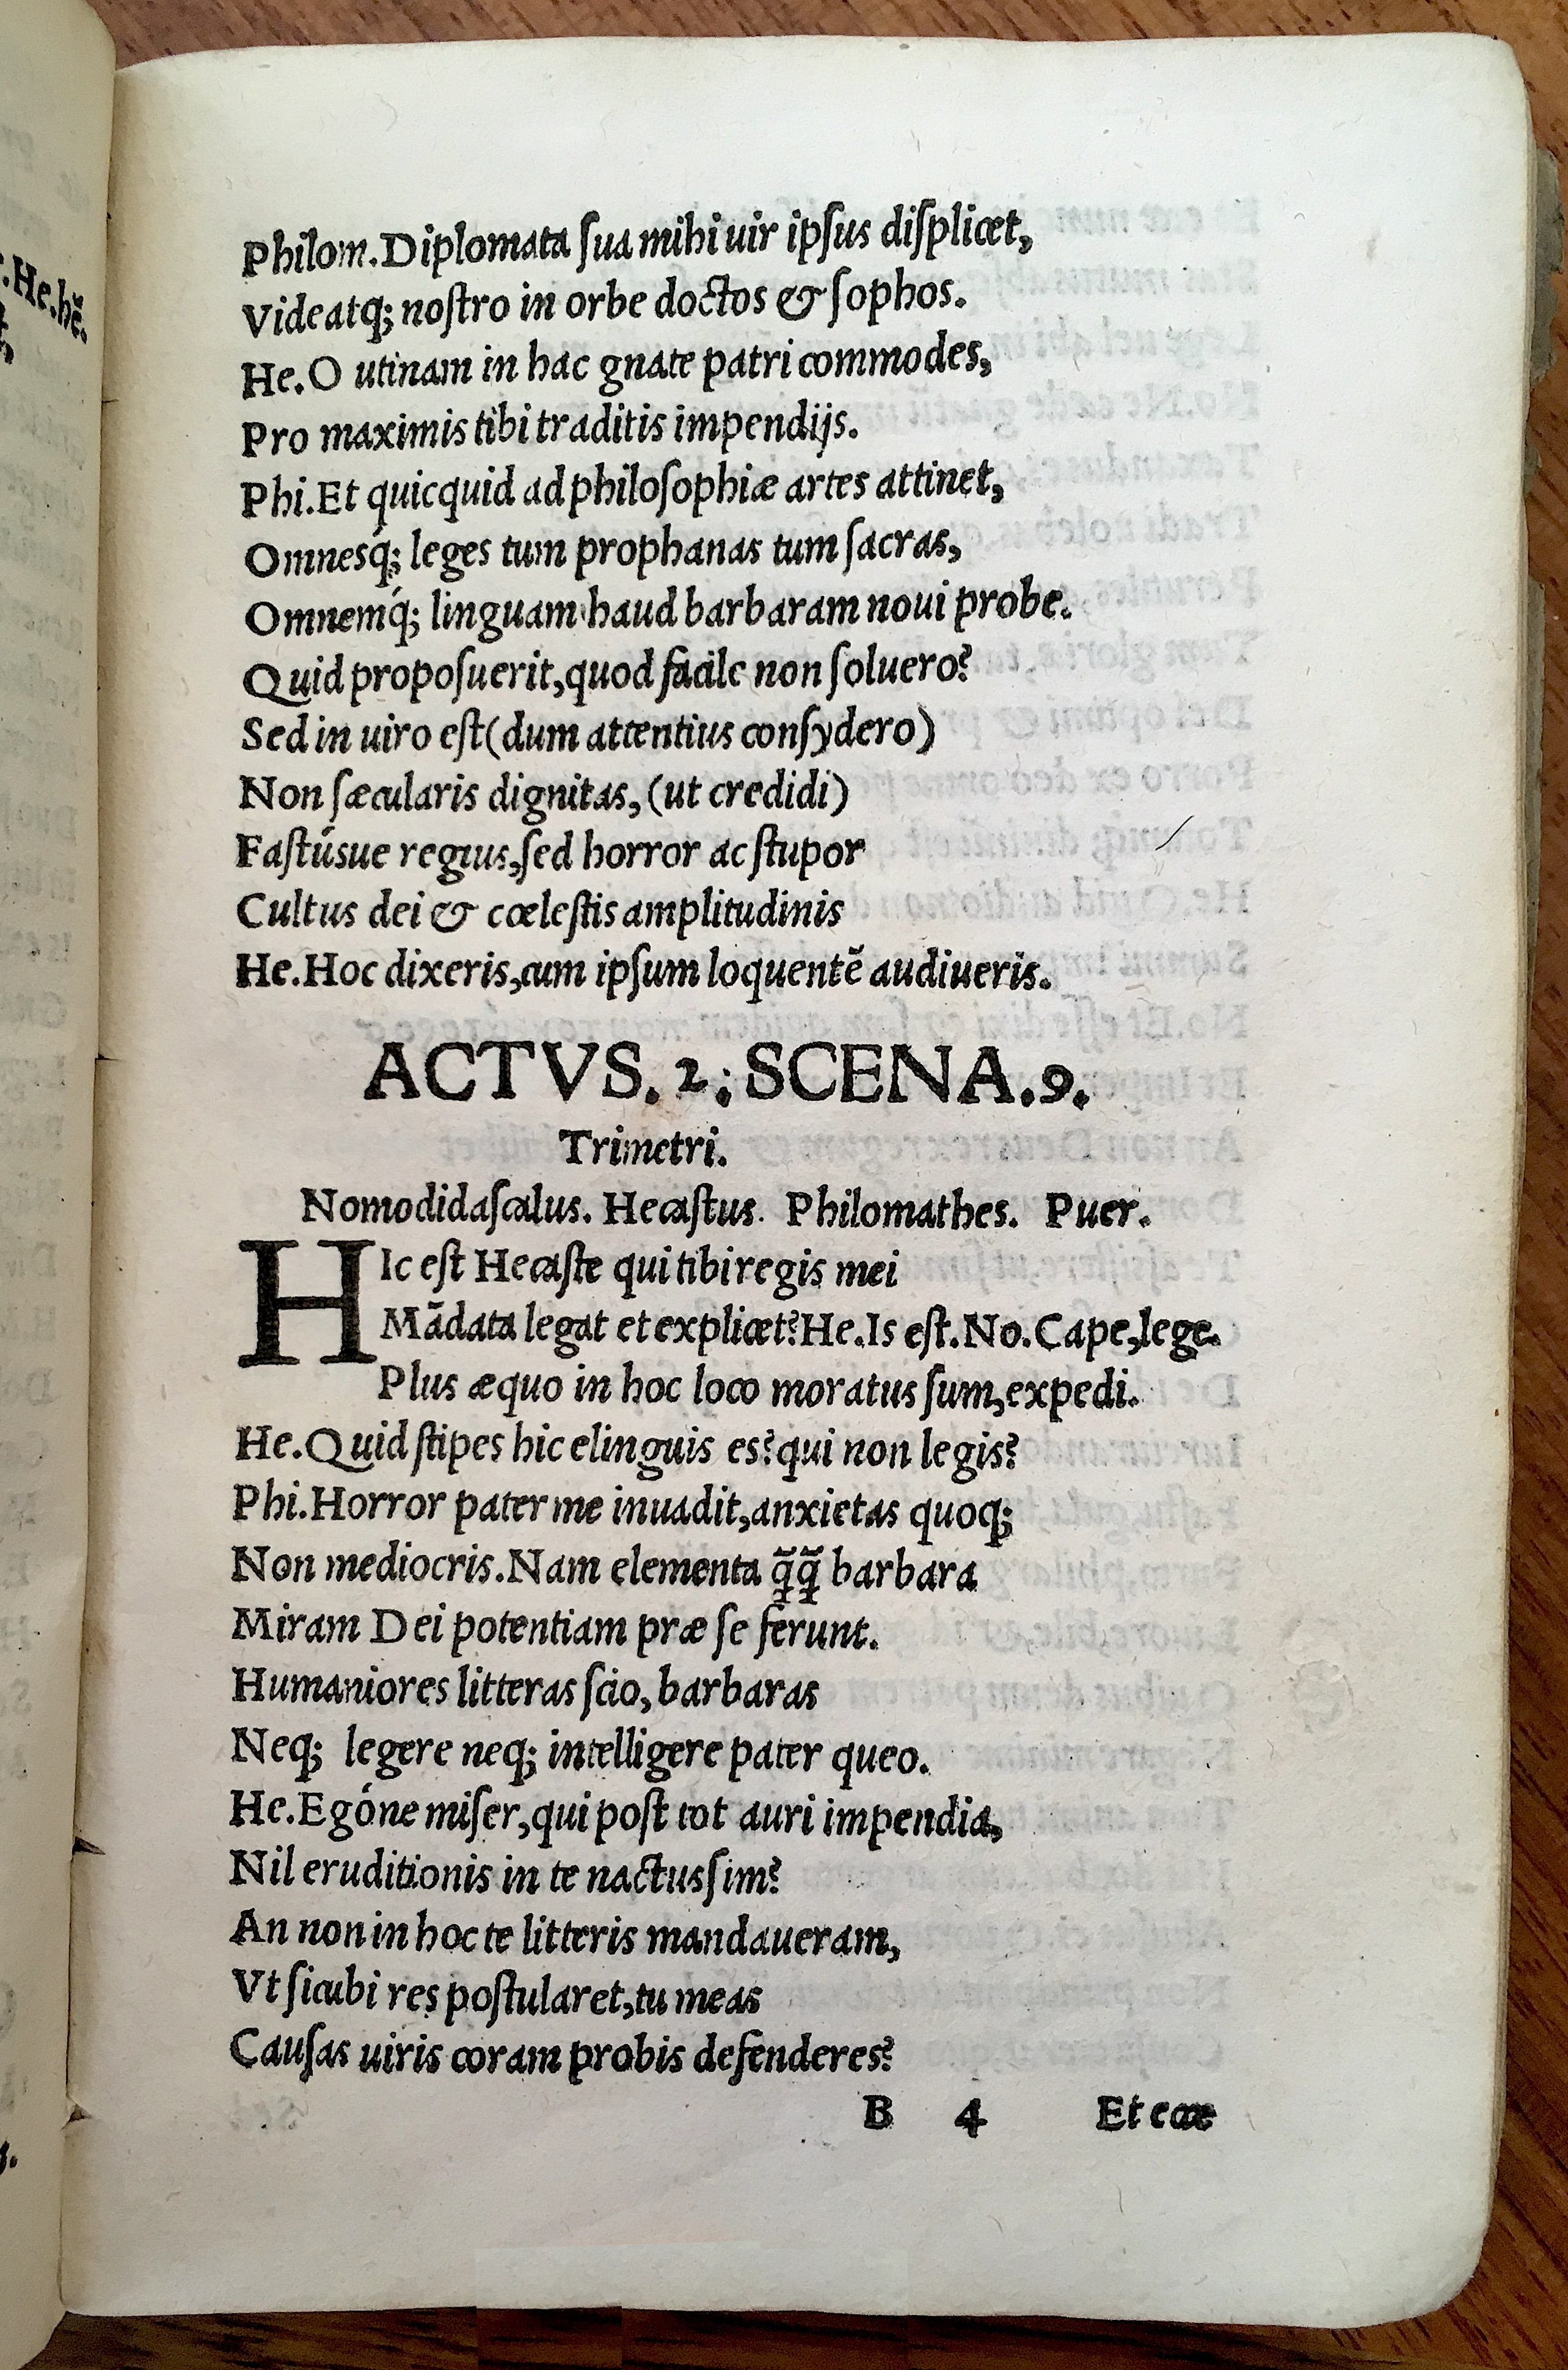 Philom. Diplomata ſua mihi uir ipſus diſplicet,
Videatq; noſtro in orbe doctos & ſophos.
He. O utinam in hac gnate patri commodes,
Pro maximis tibi traditis impendijs.
Phi. Et quicquid ad philoſophiæ artes attinet,
Omnesq́; leges tum prophanas tum ſacras,
Omnemq́; linguam haud barbaram noui probe.
Quid propoſuerit, quod facile non ſoluero?
Sed in uiro eſt (dum attentius conſydero)
Non ſæcularis dignitas, (ut credidi)
Faſtúsue regius, ſed horror ac ſtupor
Cultus dei & cœleſtis amplitudinis
He. Hoc dixeris, cum ipſum loquentẽ audiueris.
ACTVS. 2; SCENA. 9.
Trimetri.
Nomodidaſcalus. Hecaſtus. Philomathes. Puer.
HIc eſt Hecaſte qui tibi regis mei
Mãdata legat et explicet? He. Is eſt. No. Cape, lege.
Plus æquo in hoc loco moratus ſum, expedi.
He. Quid ſtipes hic elinguis es? qui non legis?
Phi. Horror pater me inuadit, anxietas quoq;
Non mediocris. Nam elementa q̃q̃ barbara
Miram Dei potentiam præ ſe ferunt.
Humaniores litteras ſcio, barbaras
Neq; legere neq; intelligere pater queo.
He. Egóne miſer, qui poſt tot auri impendia,
Nil eruditionis in te nactus ſim?
An non in hoc te litteris mandaueram,
Vt ſicubi res poſtularet, tu meas
Cauſas uiris coram probis defenderes?
B 4 Et ecce